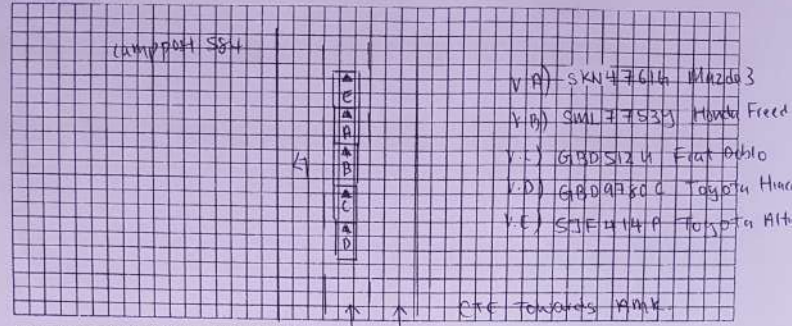 Lamppost 584
E
A
B
C
D
V.A) SKN4761G Mazda 3
V.B) SML7753Y Honda Freed
V.C) GBD512U Fiat Doblo
V.D) GBD9780C Toyota Hiac
V.E) SJF414P Toyota Alt
CTE Towards AMK